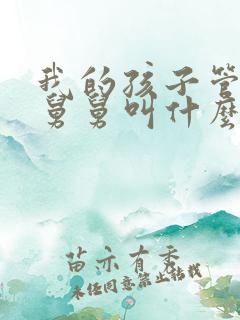 我的孩子管
舅舅叫什麽
苗亦有秀
未经同意禁止转载